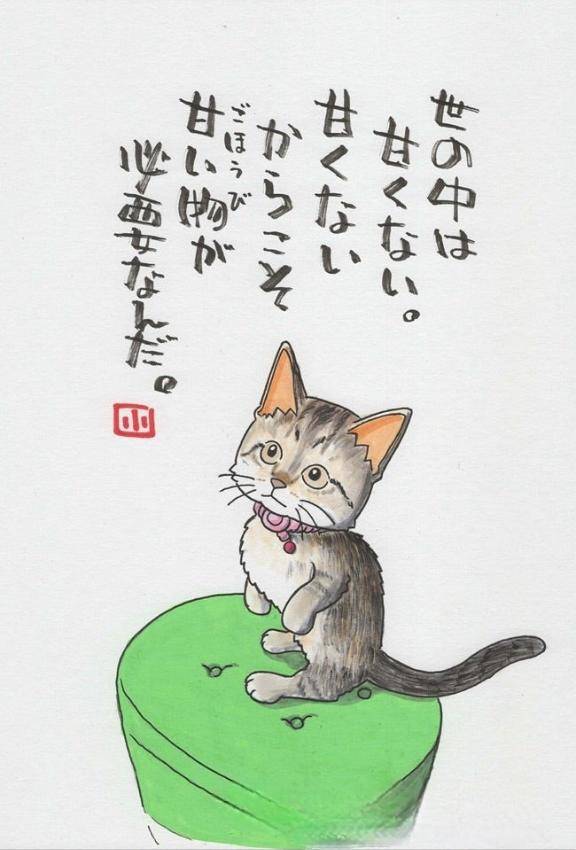 世の中は
甘くない。
甘くない
からこそ
ごほうび
甘い物が
必要なんだ。
小